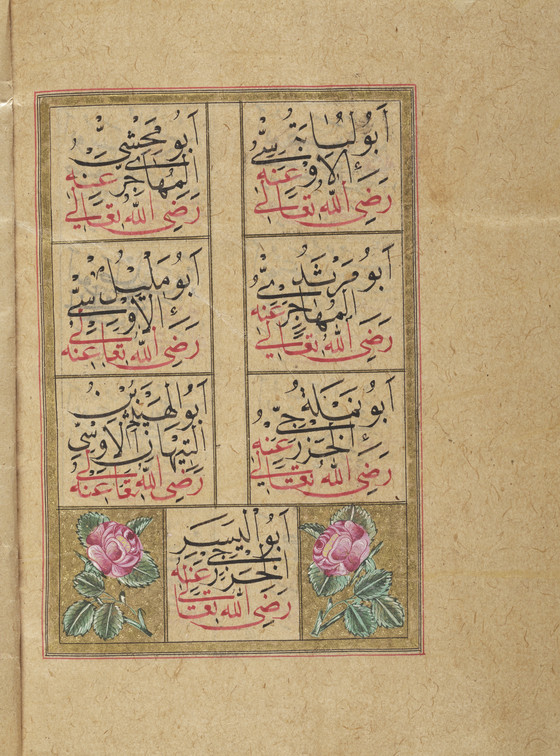 أبو لبابة
الأوسي
رضي الله تعالى عنه
أبو مخشي
المهاجري
رضي الله تعالى عنه
أبو مرثد
المهاجري
رضي الله تعالى عنه
أبو مليل
الأوسي
رضي الله تعالى عنه
أبو نملة
الخزرجي
رضي الله تعالى عنه
أبو الهيثم بن
التيهان الأوسي
رضي الله تعالى عنه
أبو اليسر
الخزرجي
رضي الله تعالى عنه